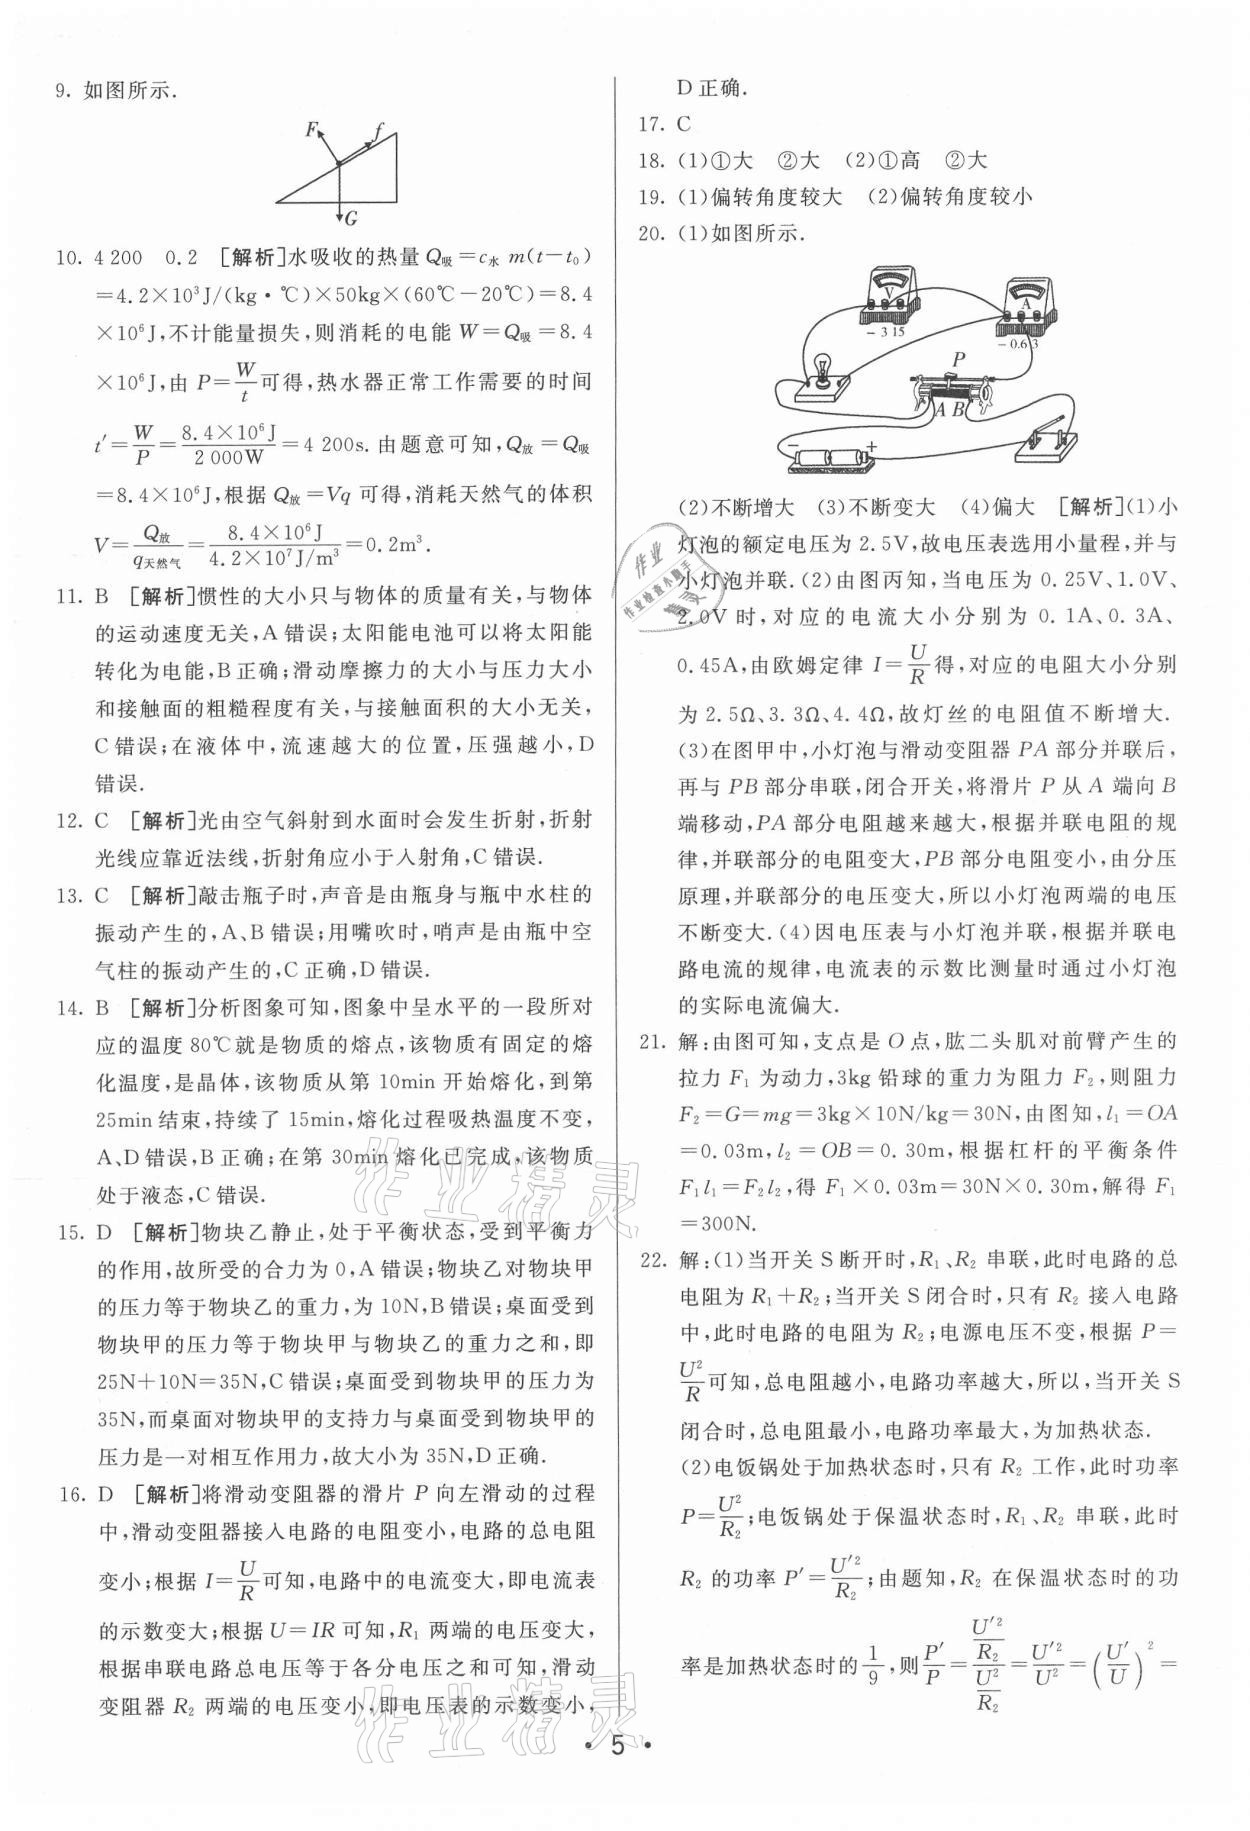 9. 如图所示.
F
f
G
10. 4 200　0.2　[解析]水吸收的热量 Q吸=c水 m(t-t₀)
=4.2×10³J/(kg·℃)×50kg×(60℃-20℃)=8.4
×10⁶J,不计能量损失,则消耗的电能 W=Q吸=8.4
×10⁶J,由 P=W/t可得,热水器正常工作需要的时间
t′=W/P=8.4×10⁶J/2 000W=4 200s.由题意可知,Q放=Q吸
=8.4×10⁶J,根据 Q放=Vq 可得,消耗天然气的体积
V=Q放/q天然气=8.4×10⁶J/4.2×10⁷J/m³=0.2m³.
11. B　[解析]惯性的大小只与物体的质量有关,与物体
的运动速度无关,A错误;太阳能电池可以将太阳能
转化为电能,B正确;滑动摩擦力的大小与压力大小
和接触面的粗糙程度有关,与接触面积的大小无关,
C错误;在液体中,流速越大的位置,压强越小,D
错误.
12. C　[解析]光由空气斜射到水面时会发生折射,折射
光线应靠近法线,折射角应小于入射角,C错误.
13. C　[解析]敲击瓶子时,声音是由瓶身与瓶中水柱的
振动产生的,A、B错误;用嘴吹时,哨声是由瓶中空
气柱的振动产生的,C正确,D错误.
14. B　[解析]分析图象可知,图象中呈水平的一段所对
应的温度80℃就是物质的熔点,该物质有固定的熔
化温度,是晶体,该物质从第10min开始熔化,到第
25min结束,持续了15min,熔化过程吸热温度不变,
A、D错误,B正确;在第30min熔化已完成,该物质
处于液态,C错误.
15. D　[解析]物块乙静止,处于平衡状态,受到平衡力
的作用,故所受的合力为0,A错误;物块乙对物块甲
的压力等于物块乙的重力,为10N,B错误;桌面受到
物块甲的压力等于物块甲与物块乙的重力之和,即
25N+10N=35N,C错误;桌面受到物块甲的压力为
35N,而桌面对物块甲的支持力与桌面受到物块甲的
压力是一对相互作用力,故大小为35N,D正确.
16. D　[解析]将滑动变阻器的滑片 P 向左滑动的过程
中,滑动变阻器接入电路的电阻变小,电路的总电阻
变小;根据 I=U/R可知,电路中的电流变大,即电流表
的示数变大;根据 U=IR 可知,R₁ 两端的电压变大,
根据串联电路总电压等于各分电压之和可知,滑动
变阻器 R₂ 两端的电压变小,即电压表的示数变小,
D正确.
17. C
18. (1)①大　②大　(2)①高　②大
19. (1)偏转角度较大　(2)偏转角度较小
20. (1)如图所示.
V
- 3 15
A
- 0.6 3
P
A B
-
+
(2)不断增大　(3)不断变大　(4)偏大　[解析](1)小
灯泡的额定电压为2.5V,故电压表选用小量程,并与
小灯泡并联.(2)由图丙知,当电压为0.25V、1.0V、
2.0V时,对应的电流大小分别为0.1A、0.3A、
0.45A,由欧姆定律 I=U/R得,对应的电阻大小分别
为2.5Ω、3.3Ω、4.4Ω,故灯丝的电阻值不断增大.
(3)在图甲中,小灯泡与滑动变阻器 PA 部分并联后,
再与 PB 部分串联,闭合开关,将滑片 P 从 A 端向 B
端移动,PA 部分电阻越来越大,根据并联电阻的规
律,并联部分的电阻变大,PB 部分电阻变小,由分压
原理,并联部分的电压变大,所以小灯泡两端的电压
不断变大.(4)因电压表与小灯泡并联,根据并联电
路电流的规律,电流表的示数比测量时通过小灯泡
的实际电流偏大.
21. 解:由图可知,支点是 O 点,肱二头肌对前臂产生的
拉力 F₁ 为动力,3kg铅球的重力为阻力 F₂,则阻力
F₂=G=mg=3kg×10N/kg=30N,由图知,l₁=OA
=0.03m,l₂=OB=0.30m,根据杠杆的平衡条件
F₁l₁=F₂l₂,得 F₁×0.03m=30N×0.30m,解得 F₁
=300N.
22. 解:(1)当开关S断开时,R₁、R₂ 串联,此时电路的总
电阻为 R₁+R₂;当开关S闭合时,只有 R₂ 接入电路
中,此时电路的电阻为 R₂;电源电压不变,根据 P=
U²/R可知,总电阻越小,电路功率越大,所以,当开关S
闭合时,总电阻最小,电路功率最大,为加热状态.
(2)电饭锅处于加热状态时,只有 R₂ 工作,此时功率
P=U²/R₂;电饭锅处于保温状态时,R₁、R₂ 串联,此时
R₂ 的功率 P′=U′²/R₂;由题知,R₂ 在保温状态时的功
率是加热状态时的1/9,则P′/P=(U′²/R₂)/(U²/R₂)=U′²/U²=(U′/U)²=
作业精灵
作业精灵
作业
作业检查小助手
精灵
· 5 ·